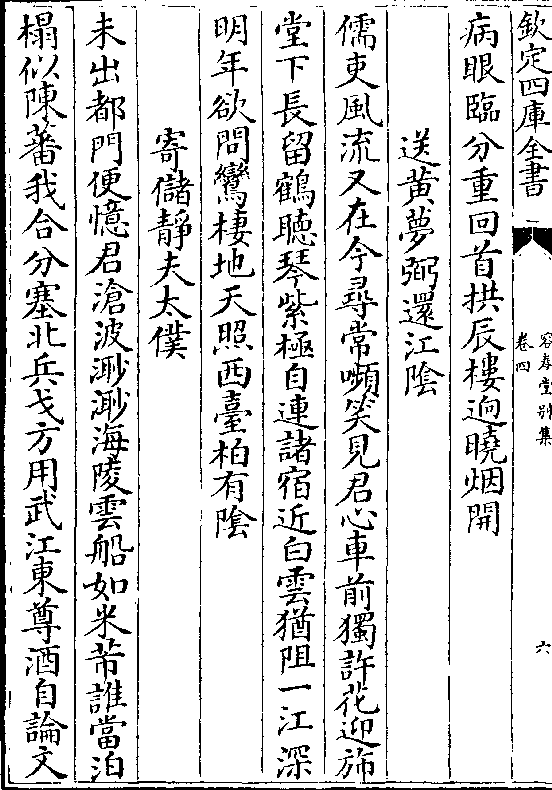 欽定四庫全書
容春堂别集
卷四
六
病眼臨分重回首拱辰樓逈曉烟開
送黄夢弼還江陰
儒吏風流又在今尋常嚬笑見君心車前獨許花迎斾
堂下長留鶴聽琴紫極自連諸宿近白雲猶阻一江深
明年欲問鸞棲地天照西臺柏有陰
寄儲靜夫太僕
未出都門便憶君滄波渺渺海陵雲船如米芾誰當泊
榻似陳蕃我合分塞北兵戈方用武江東尊酒自論文